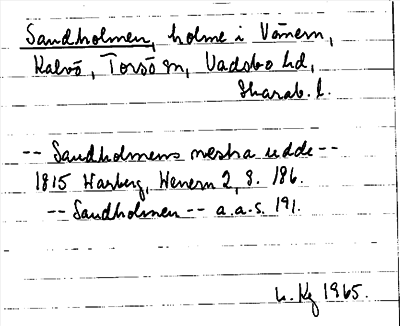 Sandholmen, holme i Vänern,
Kalvö, Torsö sn, Vadsbo hd,
Skarab. l.
-- Sandholmens nestra udde --
1815 Warberg, Wenern 2, s. 186.
-- Sandholmen -- a.a.s. 191.
1965.